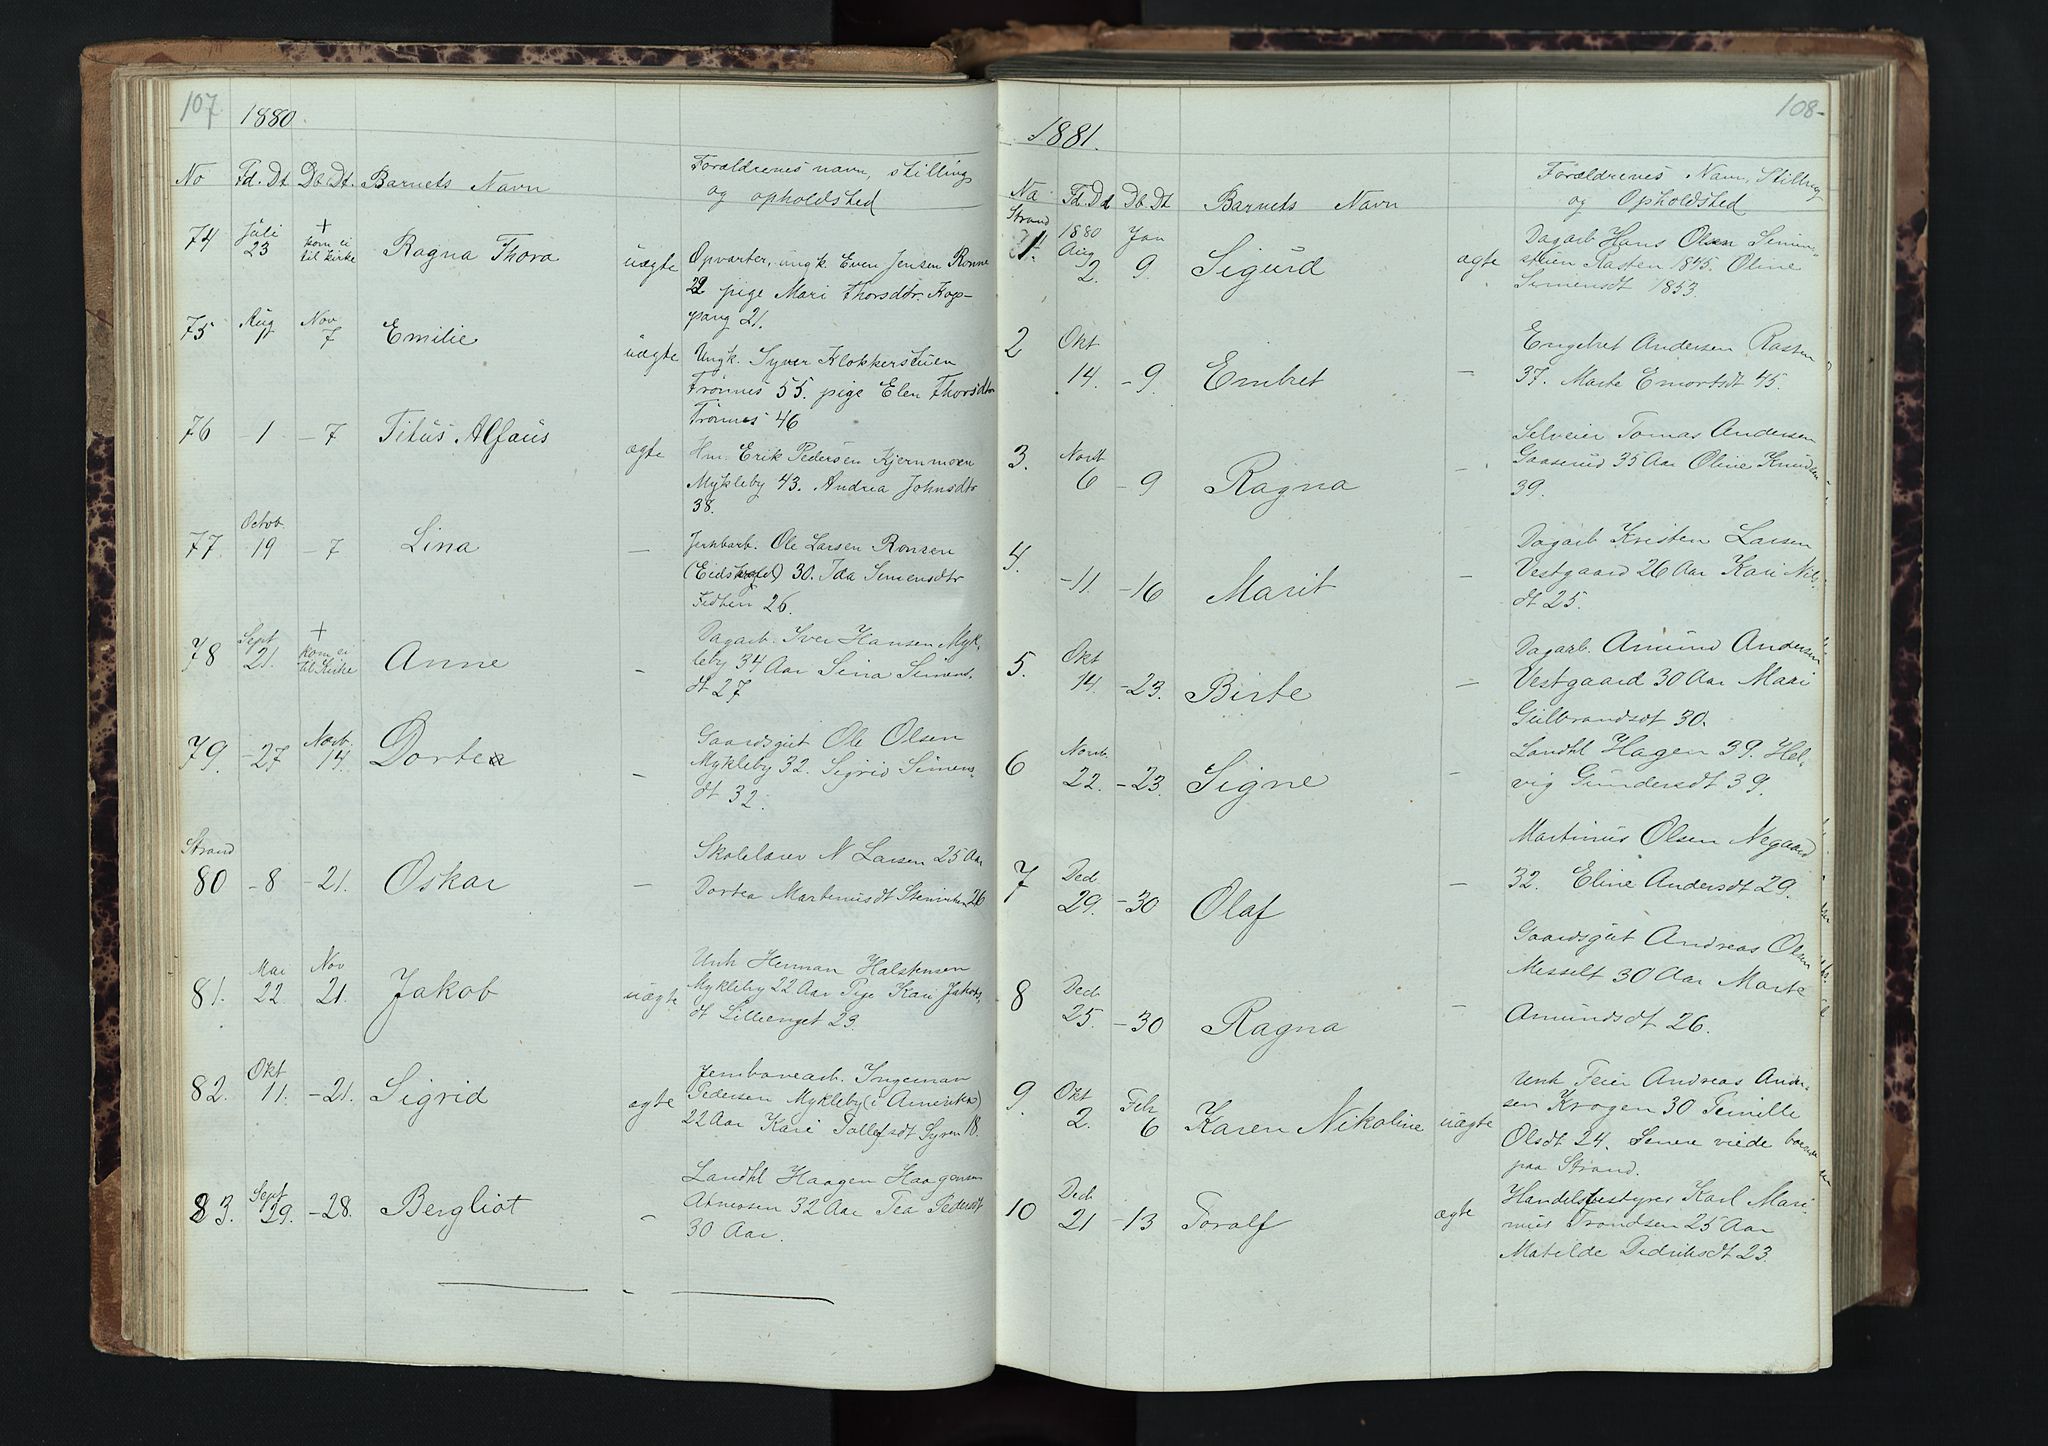 107
1880.
No Fd. Dt. Db. Dt. Barnets Navn Forældrenes navn, stilling
og opholdsted
74 Juli 23 + kom ei til kirke Ragna Thora uægte Opvarter, ungk. Even Jensen Rønne
22 pige Mari Thorsdtr. Kop-
pang 21.
75 Aug 1 Nov 7 Emilie uægte Ungk. Syver Klokkerstuen
Trønnes 55. pige Elen Thorsdtr
Trønnes 46
76 -1 -7 Titus Alfaus ægte Hm. Erik Pedersen Kjernmoen
Mykleby 43. Andrea Johnsdtr
38.
77. Octob. 19 -7 Lina - Jernbarb. Ole Larsen Ronsen
(Eidskogd) 30. Ida Simensdtr
Fedten 26.
78 Sept 21. + kom ei til Kirke Anne - Dagarb. Iver Hansen Myk-
leby 34 Aar Sina Simens-
dt 27
79. -27 Novb. 14. Dortea - Gaardsgut Ole Olsen
Mykleby 32. Sigrid Simens-
dt 32.
Strand
80 -8 -21. Oskar - Skolelærer N Larsen 25 Aar
Dortea Martinusdt Stenviken 26
81. Mai 22. Nov 21. Jakob uægte Unk Herman Halstensen
Mykleby 22 Aar Pige Kari Jakobs-
dt Lillienget 23.
82. Okt 11. -21. Sigrid ægte Jernbanearb. Ingeman
Pedersen Mykleby (i Amerika)
22 Aar Kari Tollefsdt Syren 18.
83. Sept 29. -28. Bergliot - Landhl Haagen Haagensen
Atneosen 32 Aar Tea Pedersdt
30 Aar.
108-
1881.
No Fd. Dt Db Dt Barnets Navn Forældrenes Navn, Stilling
og Opholdsted
Strand
1. 1880 Aug 2. Jan 9. Sigurd ægte Dagarb Hans Olsen Simen-
stuen Rasten 1845. Oline
Simensdt 1853.
2 Okt 14. -9. Embret - Engebret Andersen Rasten
37. Marte Emortsdt 45.
3. Novb 6 -9 Ragna - Selveier Tomas Andersen
Gaaserud 35 Aar Oline Knudsen
39.
4. -11. -16 Marit - Dagarb Kristen Larsen
Vestgaard 26 Aar Kari Nils-
dt 25.
5. Okt 14. -23. Birte - Dagarb. Amund Andersen
Vestgaard 30 Aar Mari
Gulbrandsdt 30.
6 Novb. 22. -23. Signe - Landhl Hagen 39. Hel-
vig Gundersdt 39.
7 Ded 29. -30 Olaf - Martinus Olsen Negaard
32. Eline Andersdt 29.
8 Ded 25. -30 Ragna - Gaardsgut Andreas Olsen
Messelt 30 Aar Marte
Amundsdt 26.
9. Okt 2. Feb 6 Karen Nikoline uægte Unk Feier Andreas Ander-
sen Krogen 30 Pernille
Olsdt 24. Senere viede boende
paa Strand.
10 Ded 21 -13 Toralf ægte Handelsbestyrer Karl Mari-
nius Trondsen 25 Aar
Matilde Didriksdt 23.